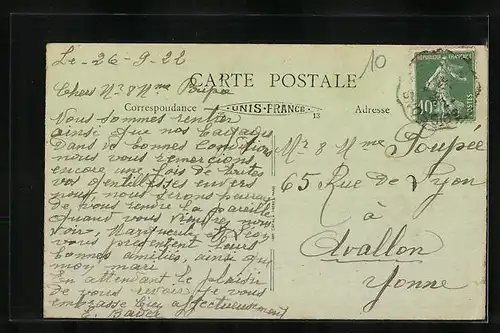 Le - 26 - 9 - 22
10
REPUBLIQUE FRANÇAISE
10c
POSTES
Chers Mr & Mme
CARTE POSTALE
Correspondance UNIS-FRANCE Adresse
13
Nous sommes rentrer
ainsi que nos bagages
Dans de bonnes conditions
nous vous remercions
encore une fois de toutes
vos gentillesses envers
nous, nous serons heureux
de vous rendre la pareille
quand vous viendrez nous
voir, Marguerite et
vous présentent leurs
bonnes amitiés, ainsi que
mon mari
En attendant le plaisir
de vous revoir je vous
embrasse bien affectueusement
E. Bauer
Mr & Mme Poupée
65 Rue de Lyon
à
Avallon
Yonne